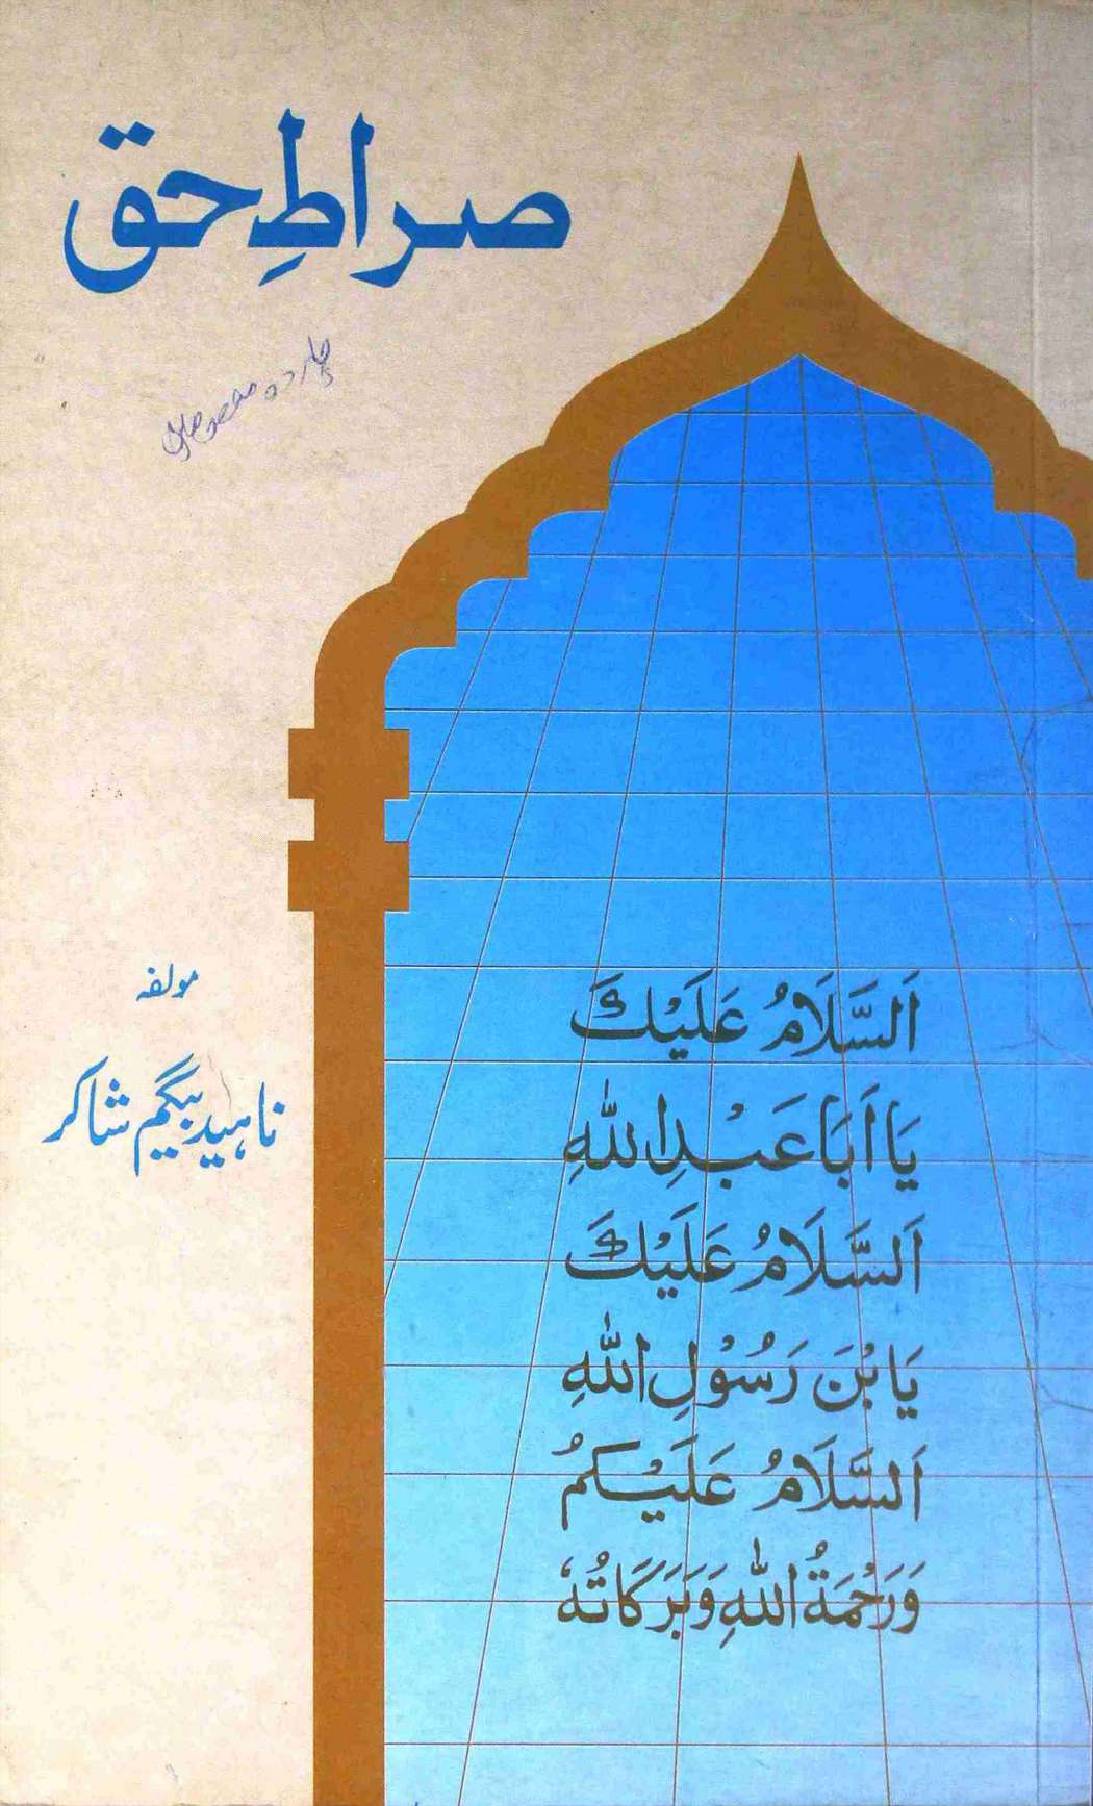 صراطِ حق
چاردہ معصومین
مولفہ
ناہید بیگم شاکر
اَلسَّلَامُ عَلَیْكَ
یَا اَبَا عَبْدِ اللّٰهِ
اَلسَّلَامُ عَلَیْكَ
یَا بْنَ رَسُوْلِ اللّٰهِ
اَلسَّلَامُ عَلَیْکُمُ
وَرَحْمَةُ اللّٰهِ وَبَرَكَاتُهٗ